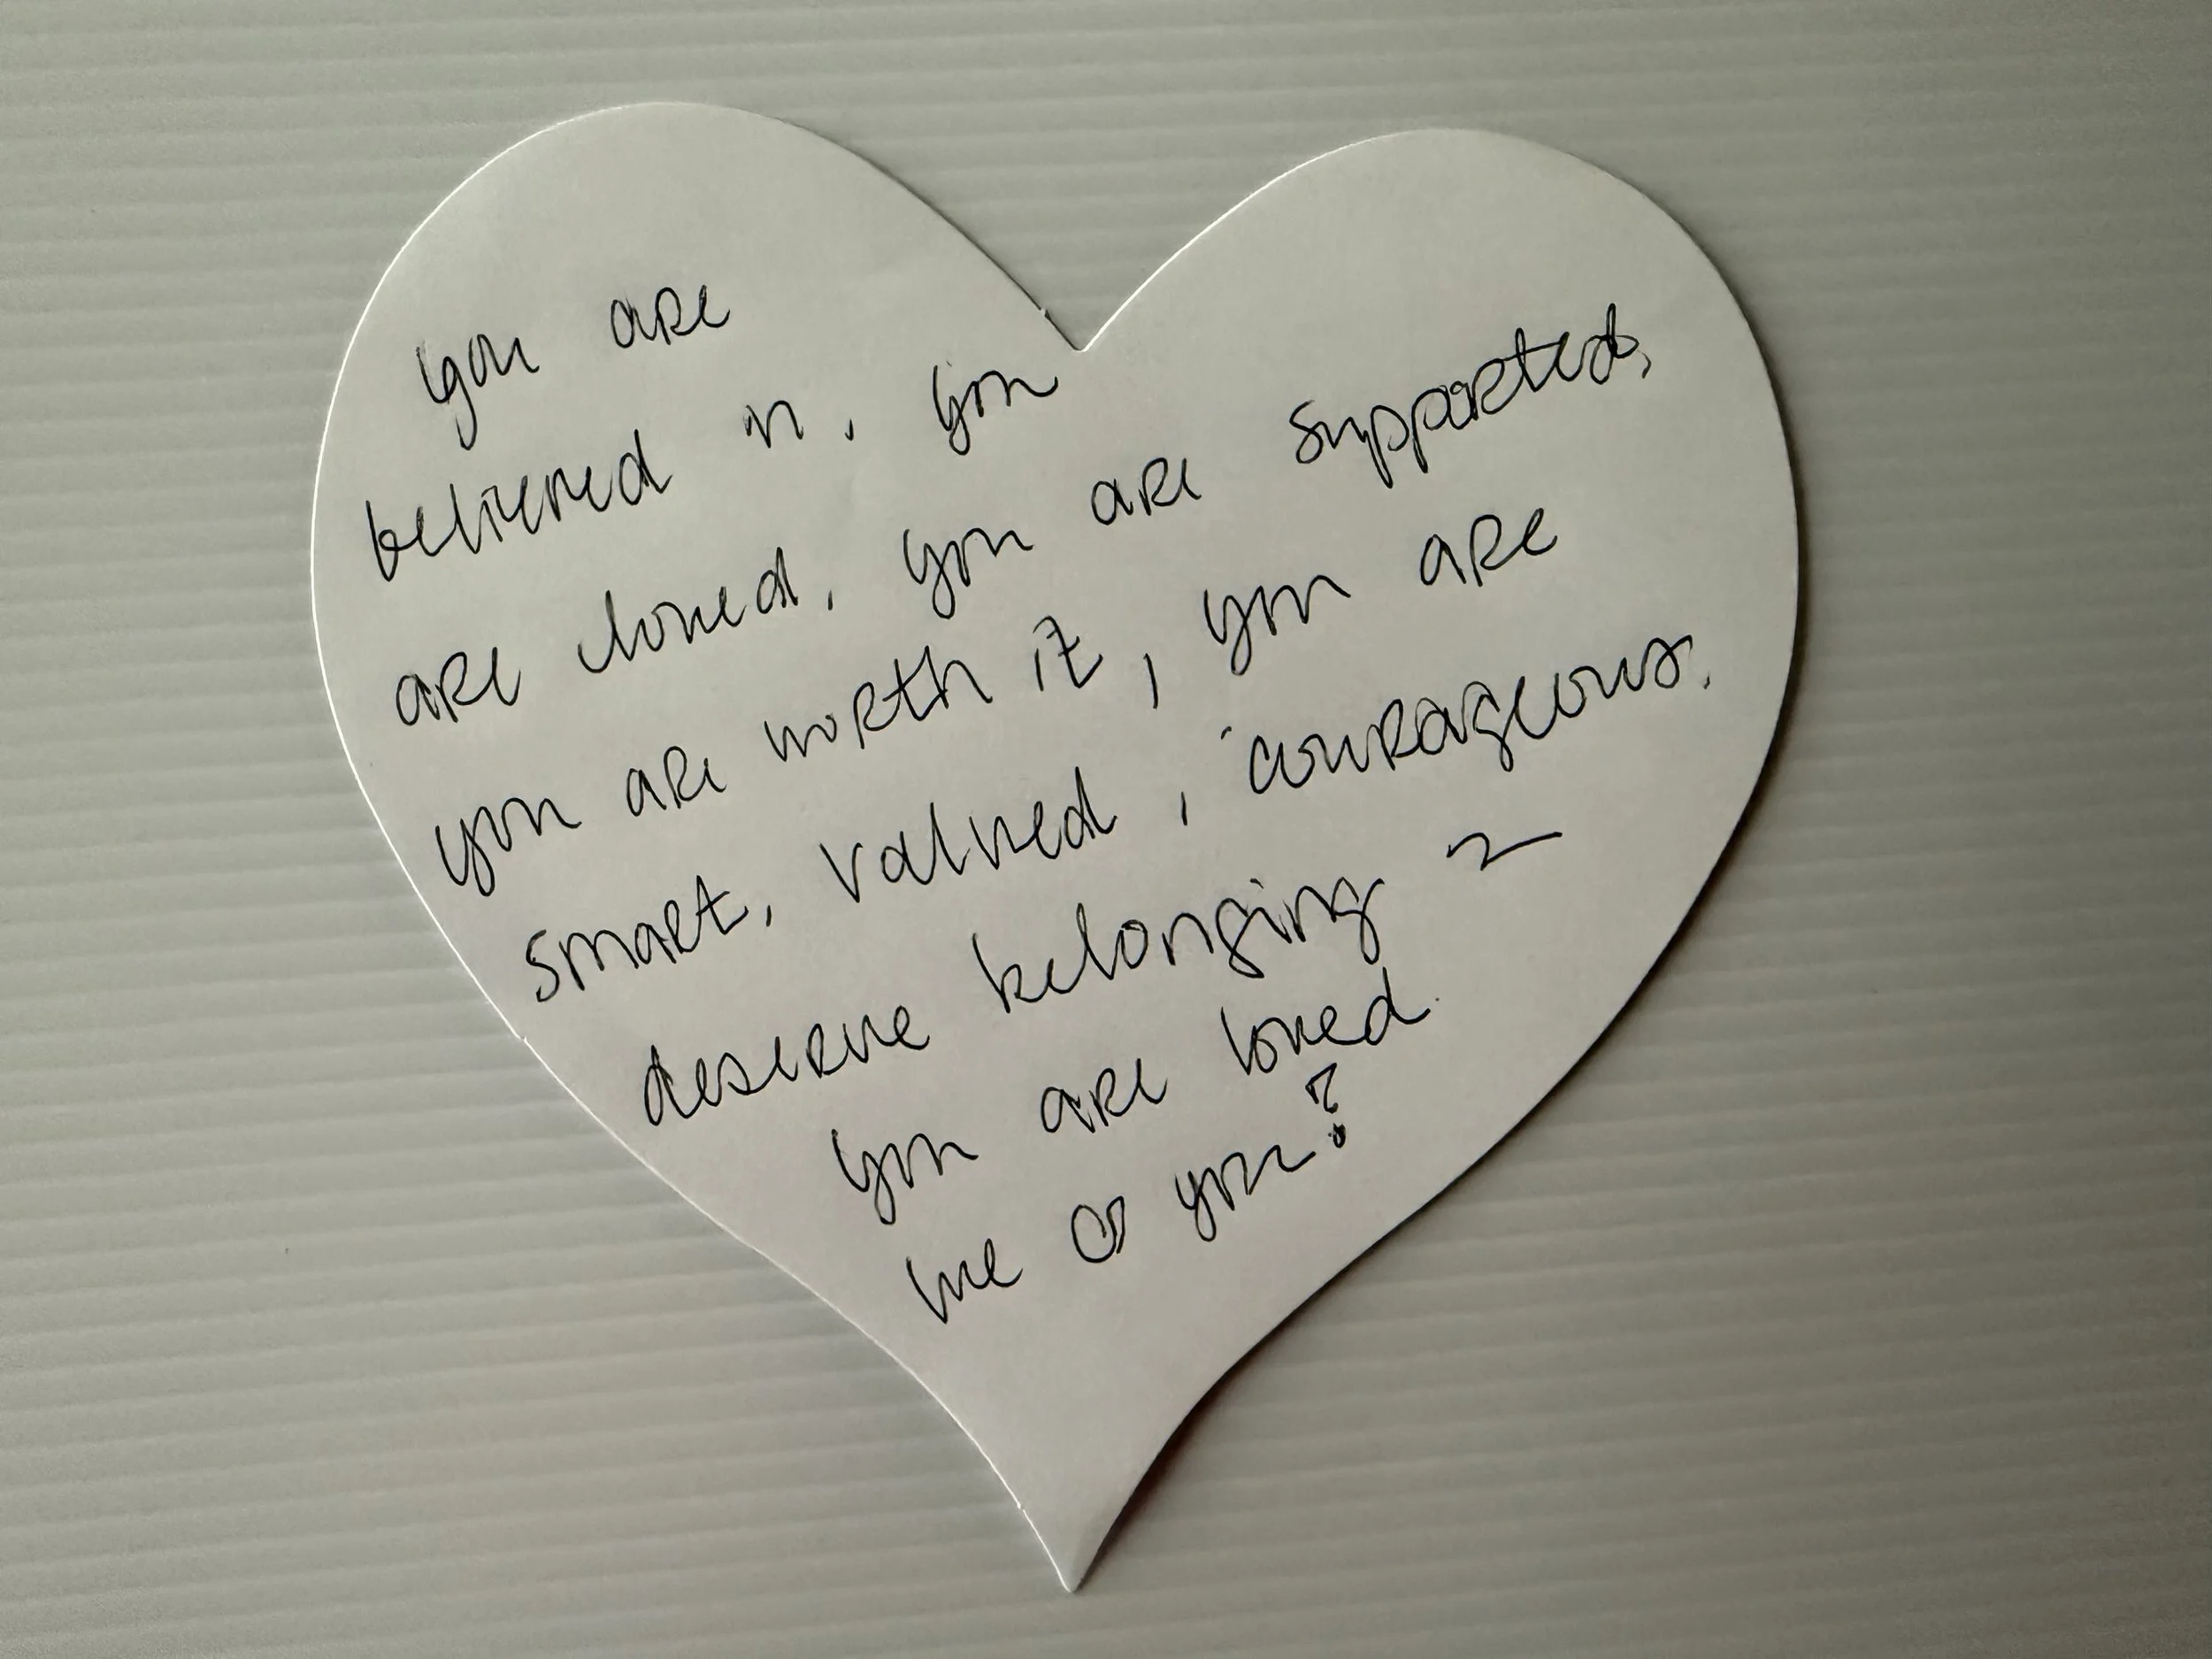 you are
believed in, you
are loved, you are supported,
you are worth it, you are
smart, valued, courageous.
deserve belonging ~
you are loved
we you?